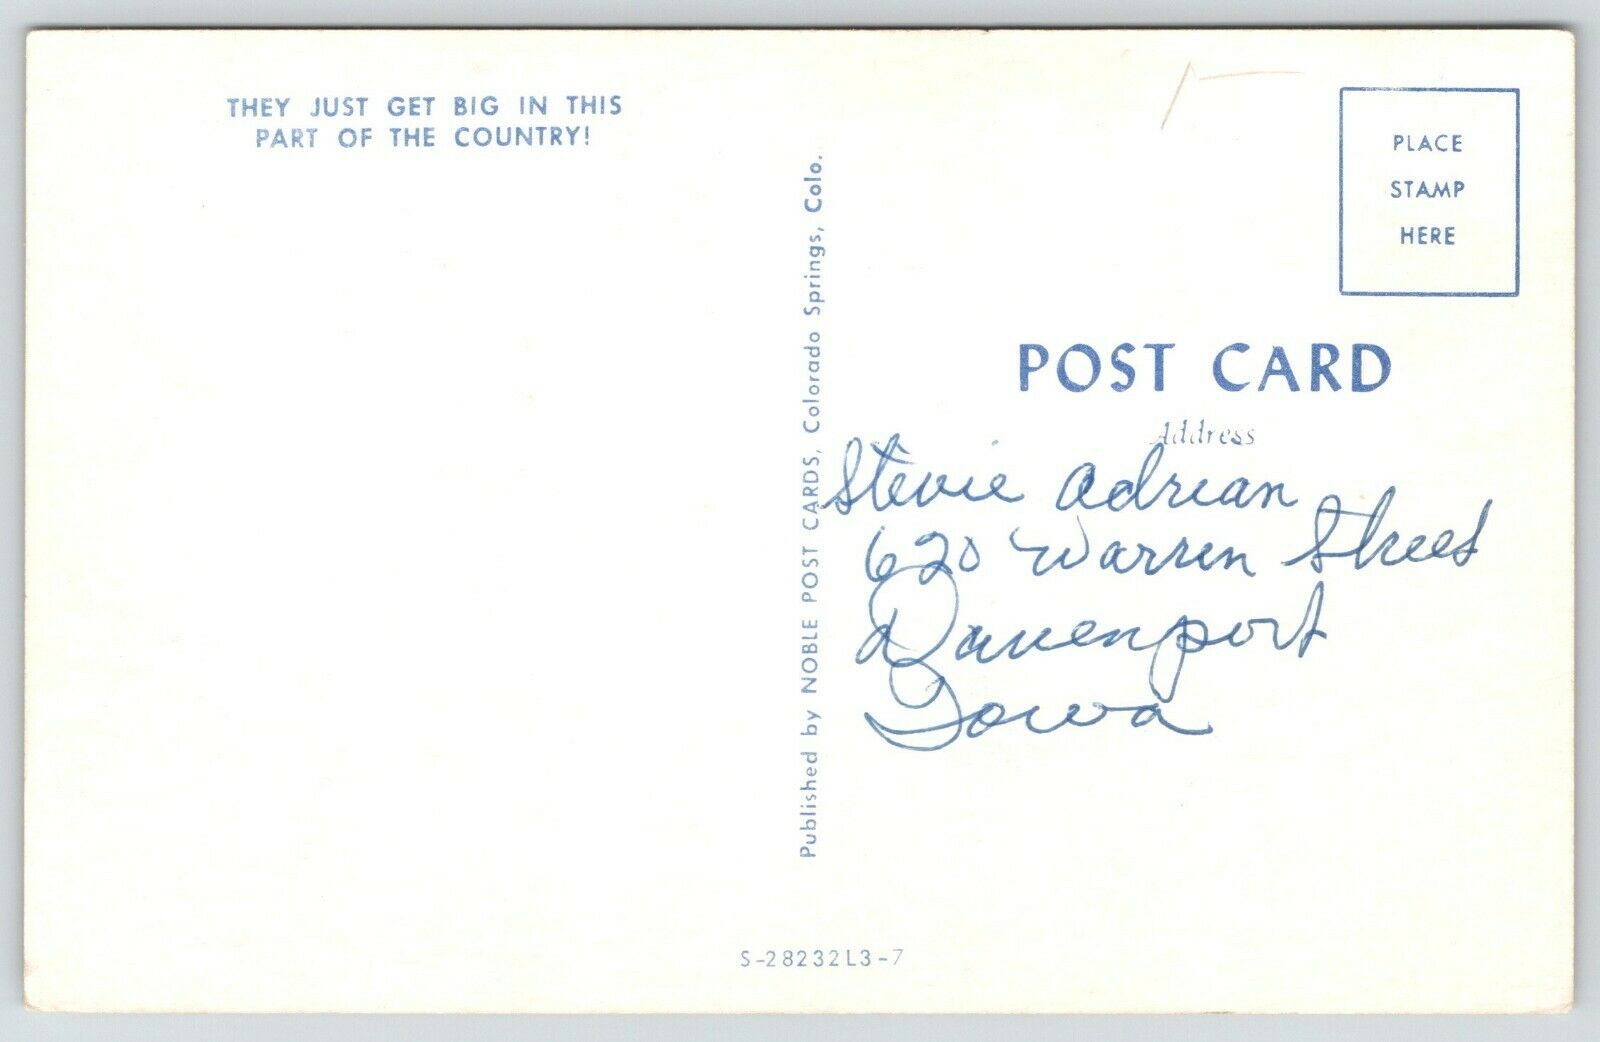 THEY JUST GET BIG IN THIS
PART OF THE COUNTRY!
Published by NOBLE POST CARDS, Colorado Springs, Colo.
PLACE
STAMP
HERE
POST CARD
Address
Stevie Adrian
620 Warren Street
Davenport
Iowa
S-28232L3-7